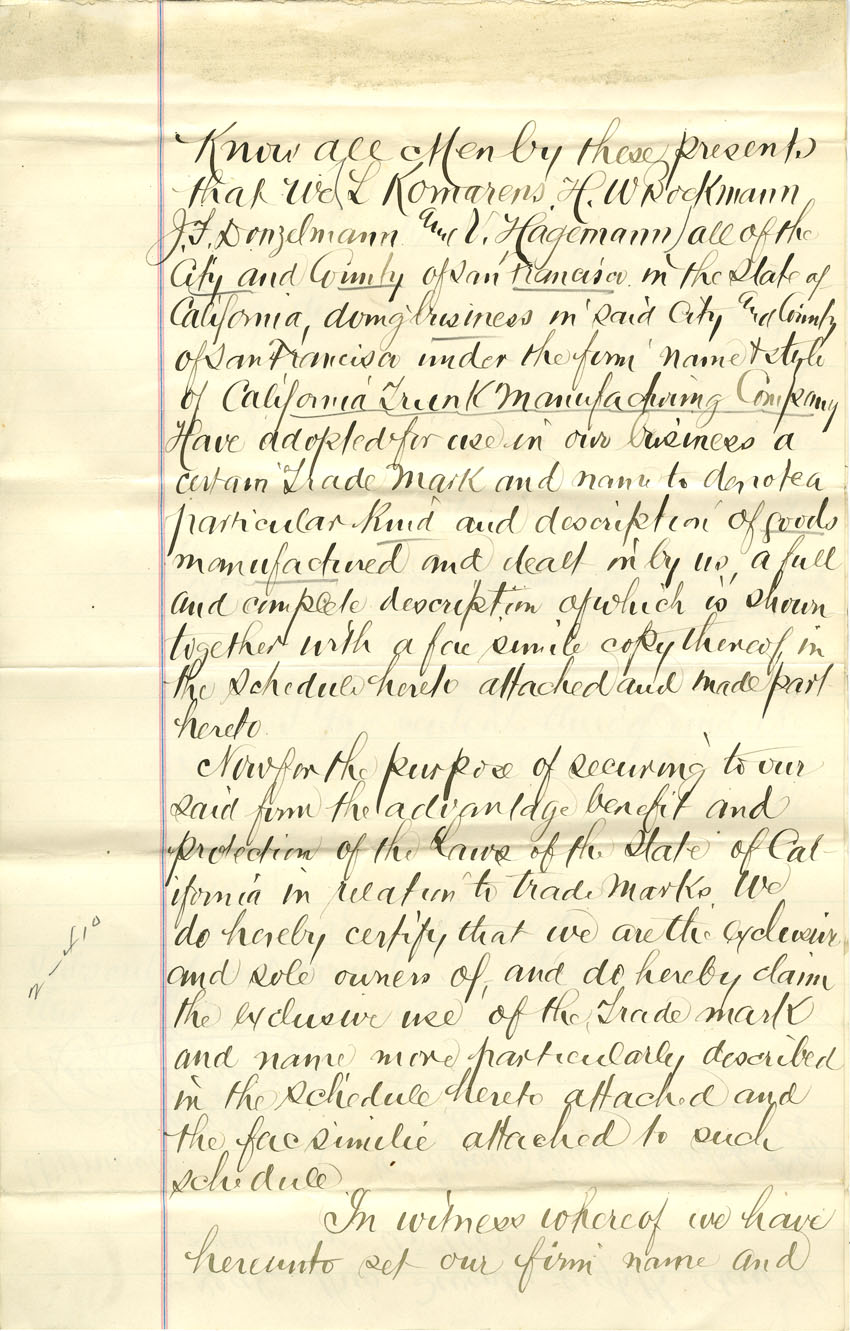 Know all Men by these presents
that We (L Komarens, H. W Bockmann
J. F. Donzelmann and V. Hagemann) all of the
City and County of San Francisco in the State of
California, doing business in said City and County
of San Francisco under the firm name & style
of California Trunk Manufacturing Company
Have adopted for use in our business a
certain Trade Mark and name to denote a
particular kind and description of goods
manufactured and dealt in by us, a full
and complete description of which is shown
together with a fac simile copy thereof, in
the Schedule hereto attached and made part
hereto.
Now for the purpose of securing to our
said firm the advantage benefit and
protection of the Laws of the State of Cal-
ifornia in relation to trade marks, We
do hereby certify that we are the exclusive
and sole owners of, and do hereby claim
the exclusive use of the Trade mark
and name more particularly described
in the Schedule hereto attached and
the fac similie attached to such
schedule
In witness whereof we have
hereunto set our firm name and